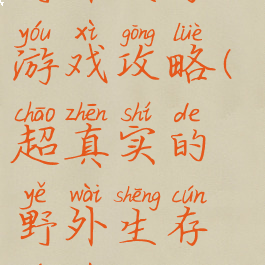 yóu xì gōng lüè
游戏攻略(
chāo zhēn shí de
超真实的
yě wài shēng cún
野外生存